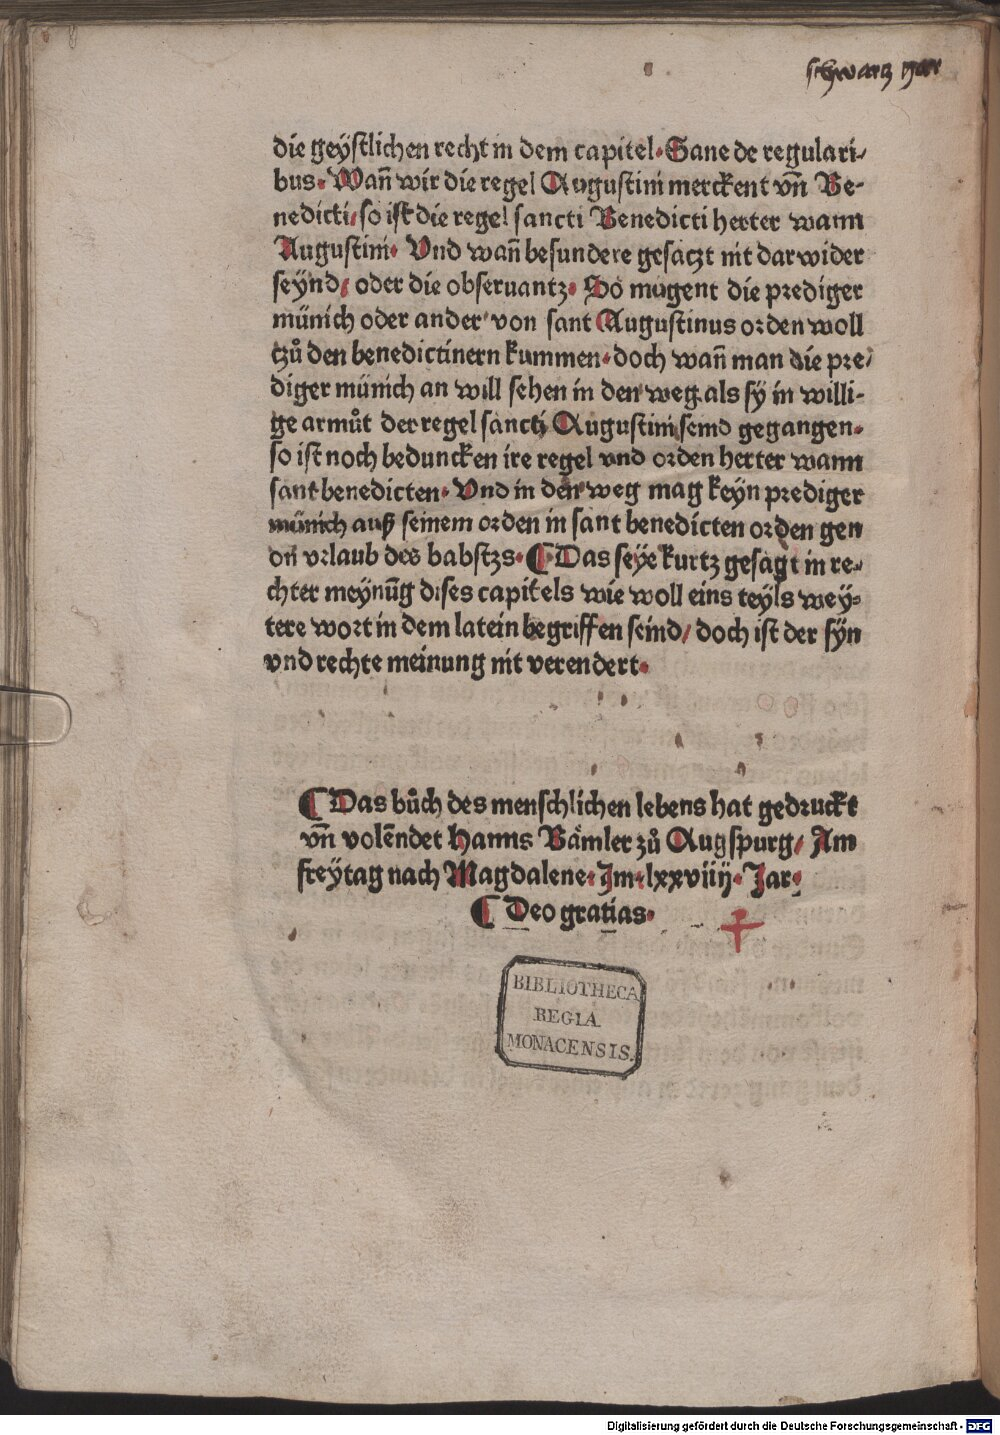 schwartz
die geÿstlichen recht in dem capitel· Sane de regulari-
bus· Wañ wir die regel Augustini merckent vñ Be-
nedicti/ so ist die regel sancti Benedicti herter wann
Augustini· Vnd wañ besundere gesaczt nit darwider
seÿnd/ oder die obseruantz· So mügent die prediger
münich oder ander von sant Augustinus orden woll
tzů den benedictinern kummen· doch wañ man die pre-
diger münich an will sehen in den weg als sÿ in willi-
ge armůt der regel sancti Augustini seind gegangen·
so ist noch beduncken ire regel vnd orden herter wann
sant benedicten· Vnd in den weg mag keÿn prediger
münich auß seinem orden in sant benedicten orden gen
on vrlaub des babstzs· ¶ Das seÿe kurtz gesagt in re-
chter meynūg dises capitels wie woll eins teÿls weÿ-
tere wort in dem latein begriffen seind/ doch ist der sÿn
vnd rechte meinung nit verendert·
¶ Das bůch des menschlichen lebens hat gedruckt
vñ volēndet Hanns Bämler zů Augspurg/ Am
freÿtag nach Magdalene· Im· lxxviiij· Jar·
¶ Deo gratias·
BIBLIOTHECA
REGIA
MONACENSIS.
Digitalisierung gefördert durch die Deutsche Forschungsgemeinschaft - DFG